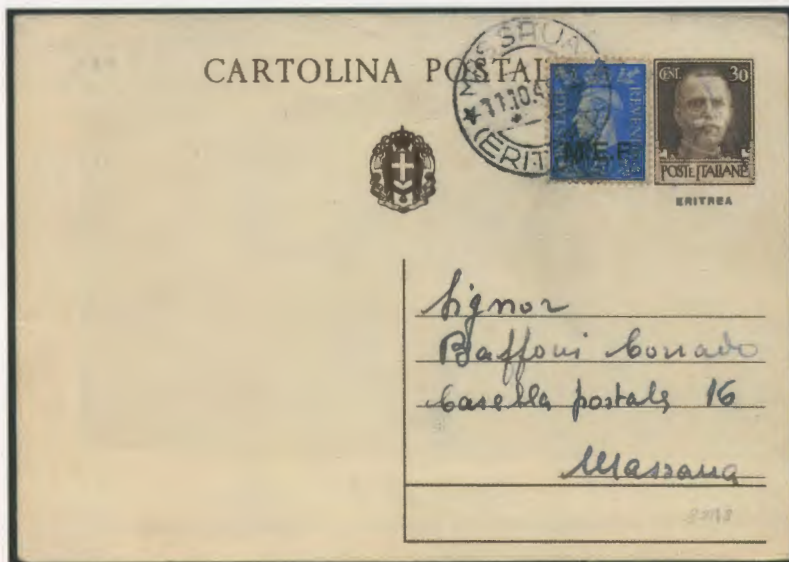 CARTOLINA POSTAL
MASSAUA
11.10.4
(ERIT
POSTAGE REVENUE
M.E.F.
CENT. 30
POSTE ITALIANE
ERITREA
Signor
Baffoni Corrado
Casella postale 16
Massaua